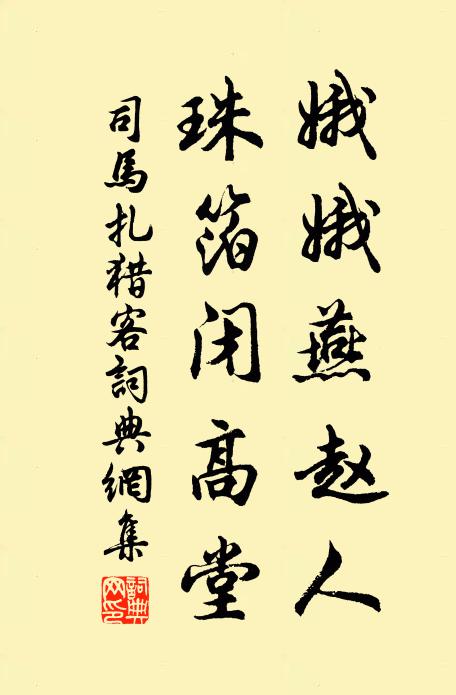 娥娥燕赵人
珠箔闭高堂
司馬扎猎客詞典網集
詞典網印